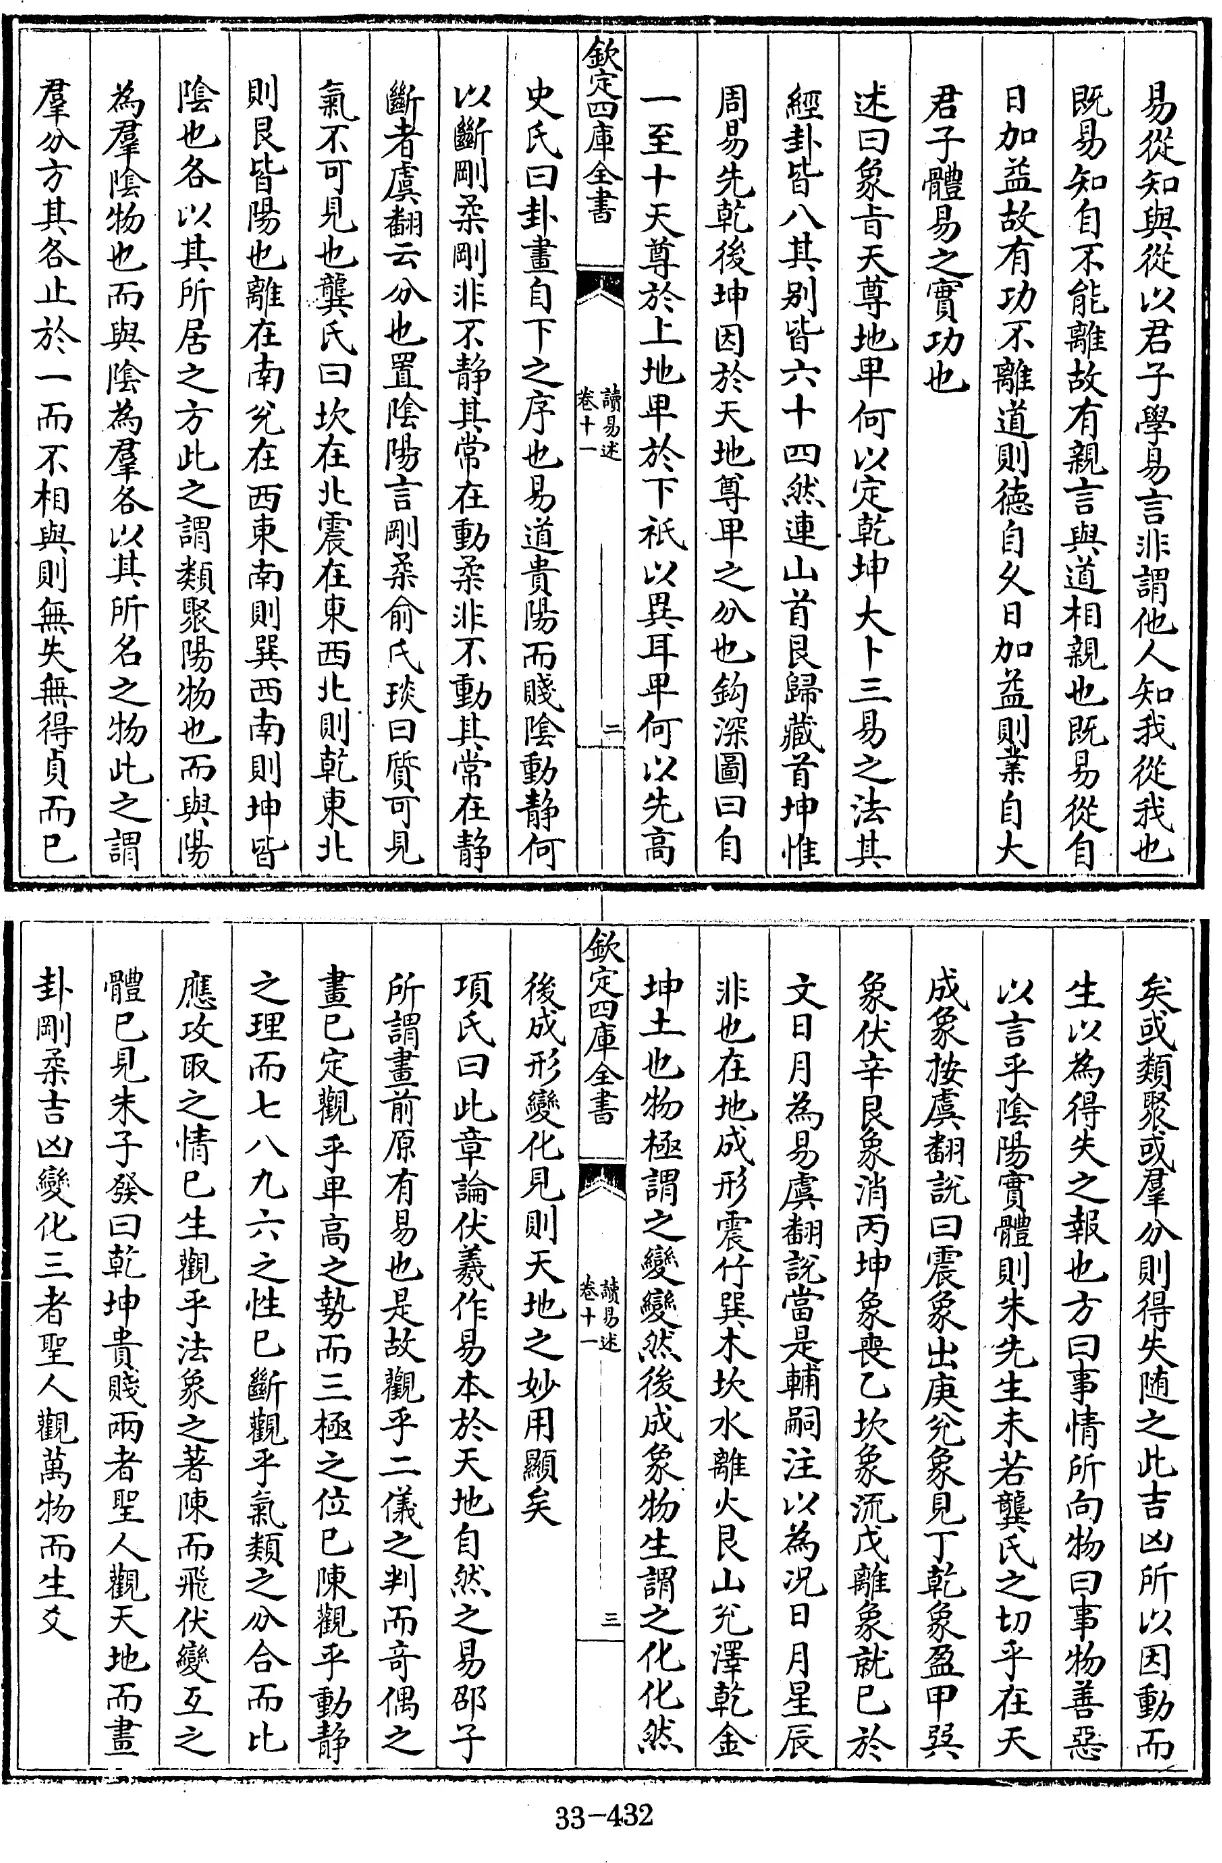 易從知與從以君子學易言非謂他人知我從我也
既易知自不能離故有親言與道相親也既易從自
日加益故有功不離道則德自久日加益則業自大
君子體易之實功也
述曰象旨天尊地卑何以定乾坤大卜三易之法其
經卦皆八其别皆六十四然連山首艮歸藏首坤惟
周易先乾後坤因於天地尊卑之分也鈎深圖曰自
一至十天尊於上地卑於下祇以異耳卑何以先高
欽定四庫全書
讀易述
卷十一
二
史氏曰卦畫自下之序也易道貴陽而賤陰動静何
以斷剛柔剛非不静其常在動柔非不動其常在静
斷者虞翻云分也置陰陽言剛柔俞氏琰曰質可見
氣不可見也龔氏曰坎在北震在東西北則乾東北
則艮皆陽也離在南兊在西東南則巽西南則坤皆
陰也各以其所居之方此之謂類聚陽物也而與陽
為羣陰物也而與陰為羣各以其所名之物此之謂
羣分方其各止於一而不相與則無失無得貞而已
矣或類聚或羣分則得失随之此吉凶所以因動而
生以為得失之報也方曰事情所向物曰事物善惡
以言乎陰陽實體則朱先生未若龔氏之切乎在天
成象按虞翻説曰震象出庚兊象見丁乾象盈甲巽
象伏辛艮象消丙坤象喪乙坎象流戊離象就已於
文日月為易虞翻說當是輔嗣注以為况日月星辰
非也在地成形震竹巽木坎水離火艮山兊澤乾金
坤土也物極謂之變變然後成象物生謂之化化然
欽定四庫全書
讀易述
卷十一
三
後成形變化見則天地之妙用顯矣
項氏曰此章論伏羲作易本於天地自然之易邵子
所謂畫前原有易也是故觀乎二儀之判而奇偶之
畫已定觀乎卑高之勢而三極之位已陳觀乎動静
之理而七八九六之性已斷觀乎氣類之分合而比
應攻取之情已生觀乎法象之著陳而飛伏變互之
體已見朱子發曰乾坤貴賤兩者聖人觀天地而畫
卦剛柔吉凶變化三者聖人觀萬物而生爻
33-432